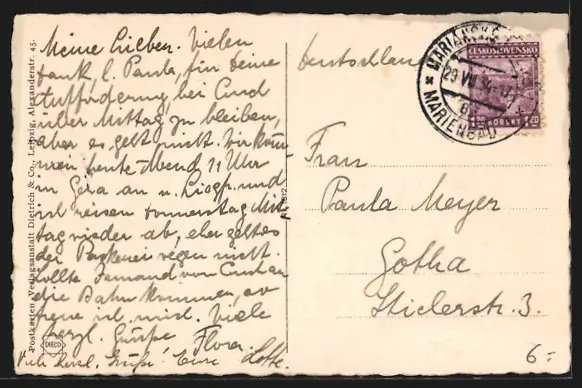 Meine Lieben. Vielen
Dank, l. Paula, für Deine
Aufforderung, bei
über Mittag zu bleiben,
aber es geht nicht. Wir kom
men heute Abend 11 Uhr
in Gera an u. und
ich reisen Donnerstag Mit
tag wieder ab, eher geht es
der Packerei wegen nicht.
Sollte Jemand von
die Bahn kommen, so
freue ich mich. Viele
herzl. Grüße Flora.
Viele herzl. Grüße! Eure Lotte.
Postkarten-Verlagsanstalt Dietrich & Co., Leipzig, Alexanderstr. 45.
DIECO
Deutschland
MARIÁNSKÉ
29 VII 34
MARIENBAD
ČESKOSLOVENSKO
1.20 KORUNY 1.20
Frau
Paula Meyer
Gotha
Stielerstr. 3.
6.-